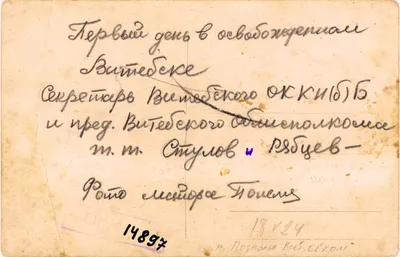 Первый день в освобожденном
Витебске
Секретарь Витебского ОККП(б)Б
и пред. Витебского облисполкома
т. т. Стулов и Рябцев –
Фото майора
14897
18х24